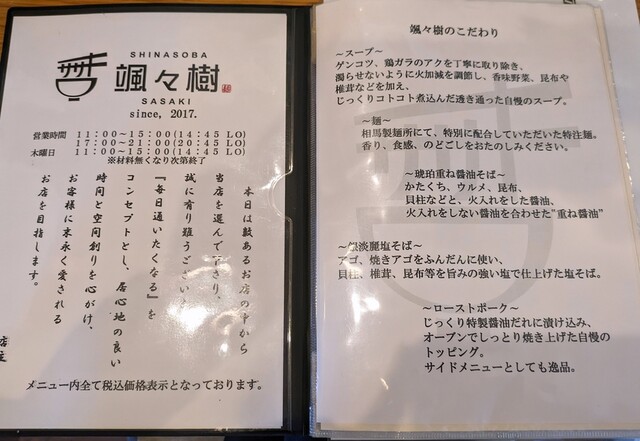 SHINASOBA
颯々樹
SASAKI
since, 2017.
営業時間 11:00～15:00(14:45 LO)
17:00～21:00(20:45 LO)
木曜日 11:00～15:00(14:45 LO)
※材料無くなり次第終了
本日は数あるお店の中から
当店を選んで下さり、
誠に有り難うござい
『毎日通いたくなる』を
コンセプトとし、居心地の良い
時間と空間創りを心がけ、
お客様に末永く愛される
お店を目指します。
店主
メニュー内全て税込価格表示となっております。
颯々樹のこだわり
～スープ～
ゲンコツ、鶏ガラのアクを丁寧に取り除き、
濁らせないように火加減を調節し、香味野菜、昆布や
椎茸などを加え、
じっくりコトコト煮込んだ透き通った自慢のスープ。
～麺～
相馬製麺所にて、特別に配合していただいた特注麺。
香り、食感、のどごしをおたのしみください。
～琥珀重ね醤油そば～
かたくち、ウルメ、昆布、
貝柱などと、火入れをした醤油、
火入れをしない醤油を合わせた"重ね醤油"
～銀淡麗塩そば～
アゴ、焼きアゴをふんだんに使い、
貝柱、椎茸、昆布等を旨みの強い塩で仕上げた塩そば。
～ローストポーク～
じっくり特製醤油だれに漬け込み、
オーブンでしっとり焼き上げた自慢の
トッピング。
サイドメニューとしても逸品。